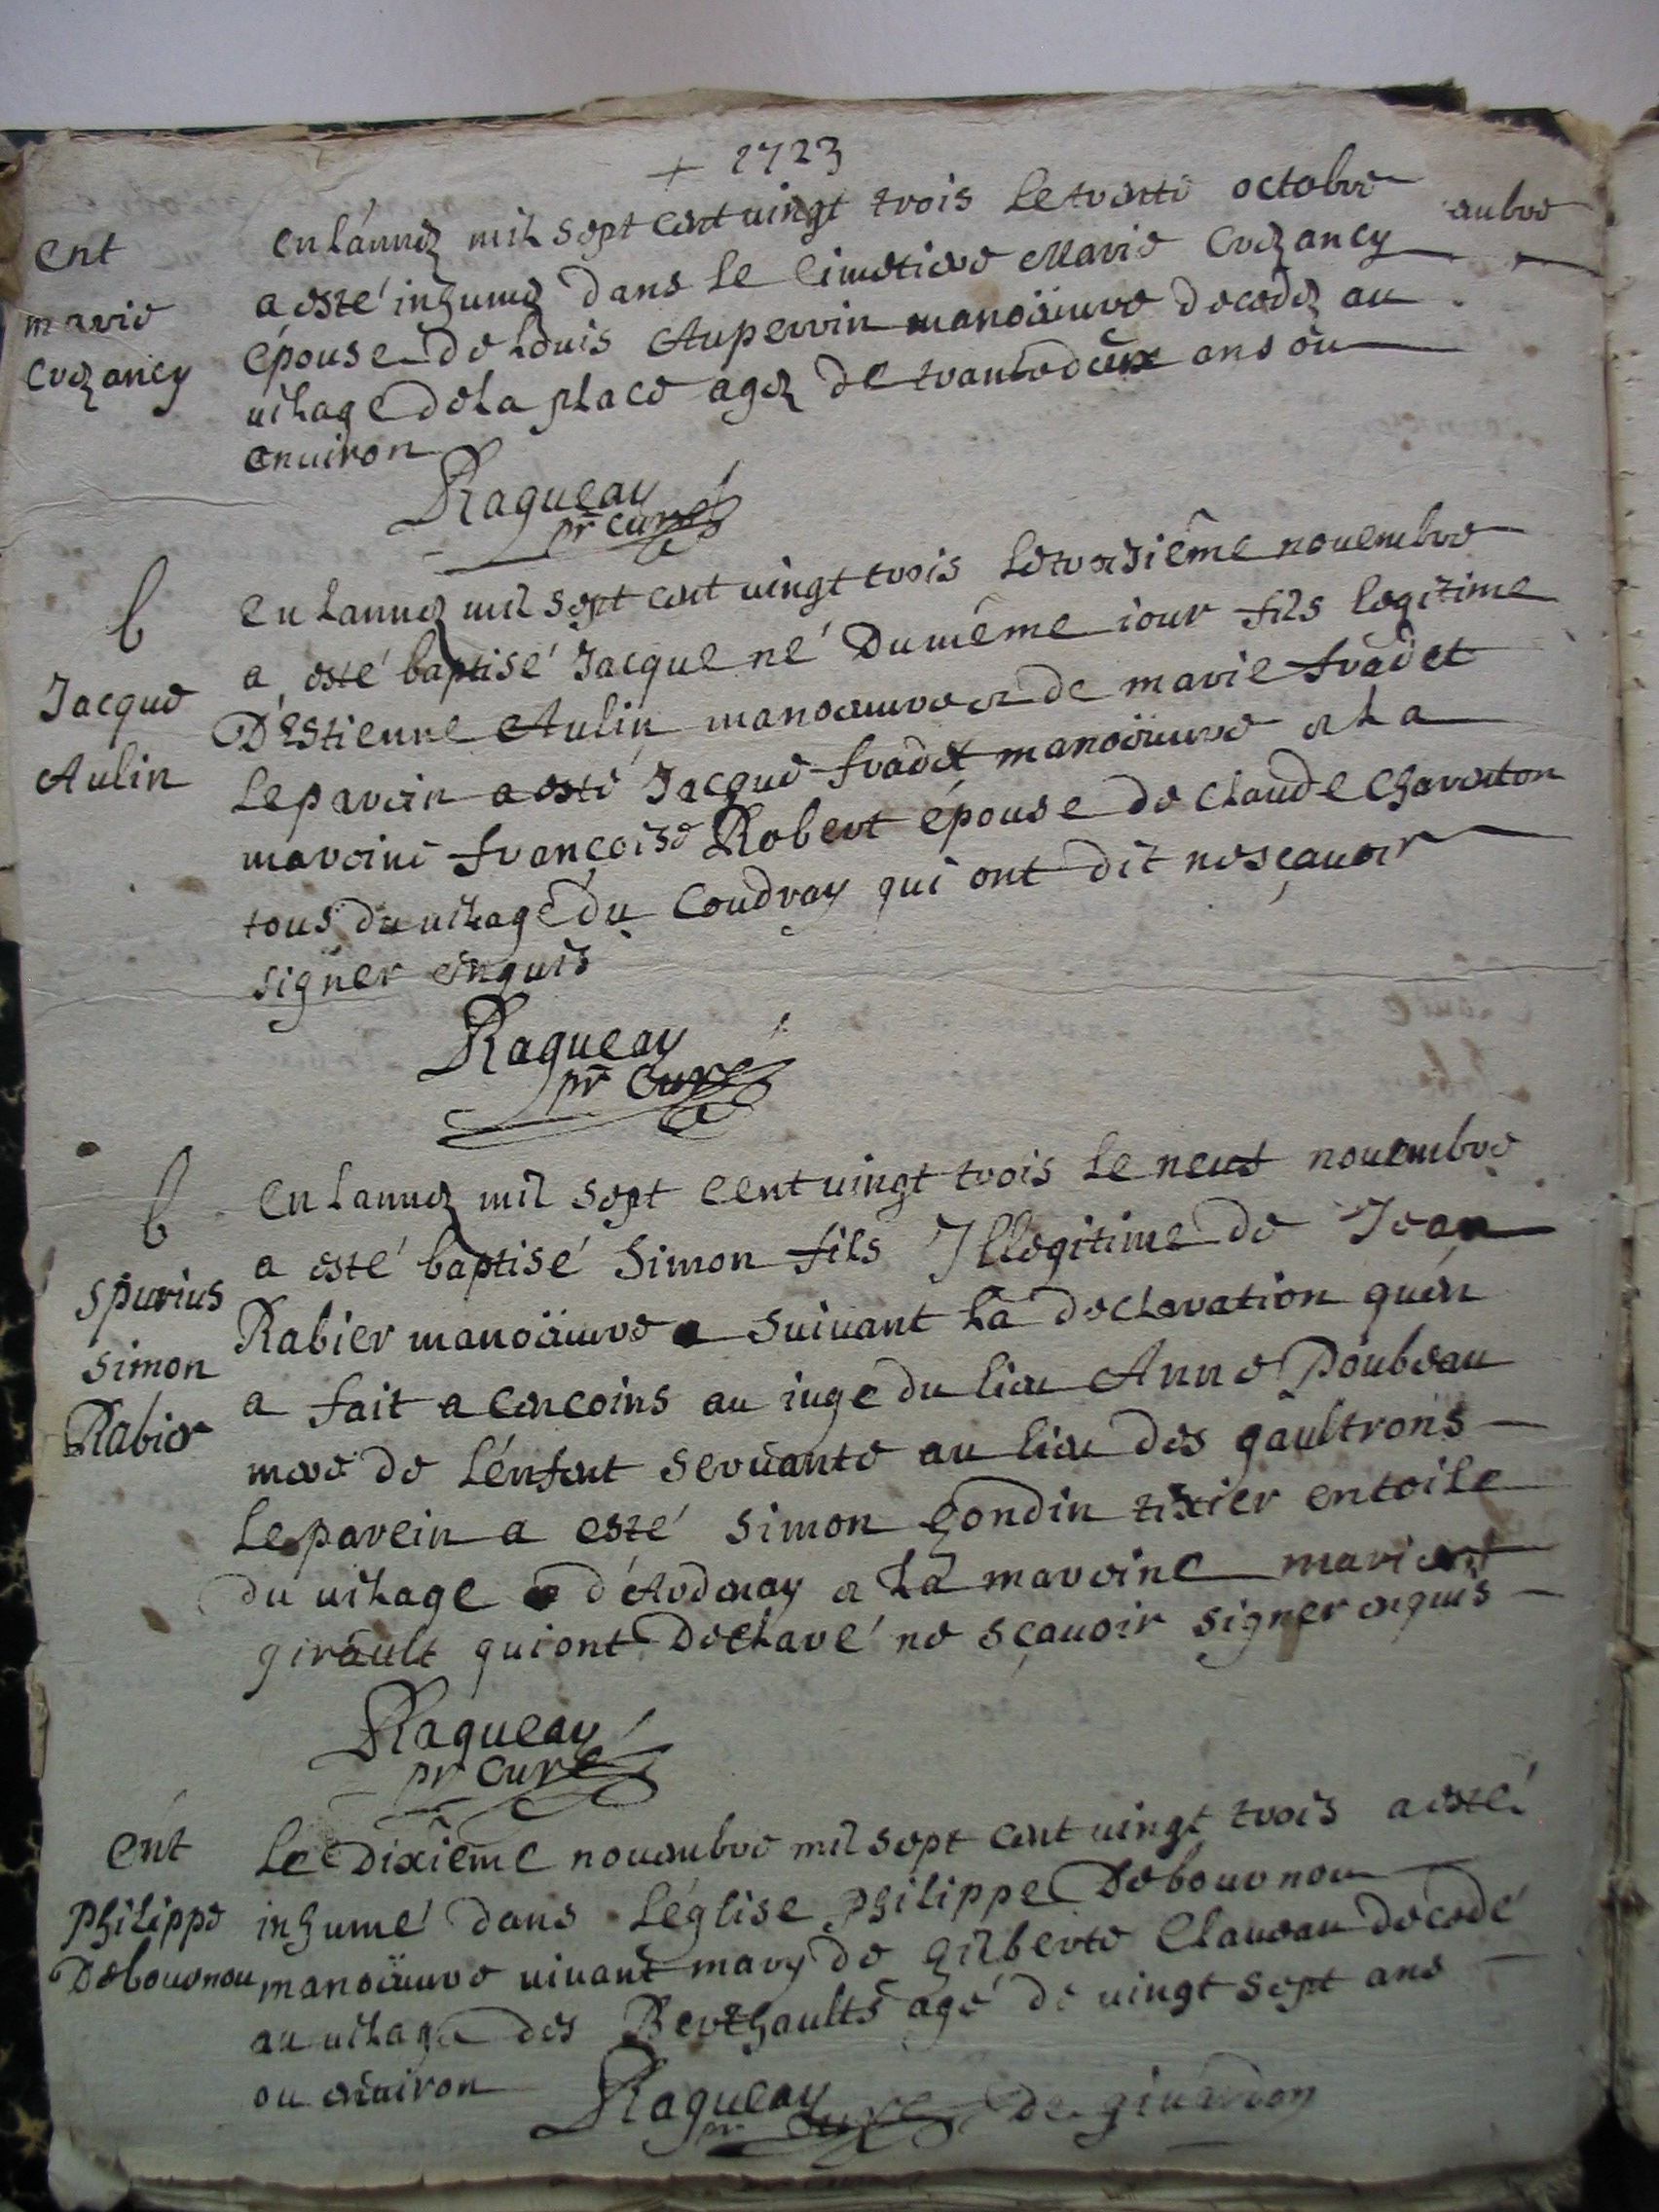 + 1723
ent
marie
Crezancy
en lannéz mil sept cent vingt trois le trente octobre
a esté inhuméz dans le cimetiere Marie Crezancy
épouse de Loüis Auperrin manoäuvre decedéz au
vilage de la place agéz de trante deux ans oû
environ
Raqueau
pr curé
b
Jacque
Aulin
en lannéz mil sept cent vingt trois le troisiême novembre
a esté baptisé Jacque né du même iour fils legitime
D'Estienne Aulin manoeuvre et de marie fradet
le parein a esté Jacque fradet manoäuvre et la
mareine françoise Robert épouse de claude Charenton
tous du vilage du Coudray qui ont dit ne sçavoir
signer enquis
Raqueau
pr curé
b
spurius
simon
Rabier
en lannéz mil sept cent vingt trois le neuf novembre
a esté baptisé Simon fils Illegitime de Jean
Rabier manoäuvre suivant la declaration qu'en
a fait a Concoins au iuge du lieu Anne Doubeau
mere de l'enfent servante au lieu des gaultrons
le parein a esté simon hondin tixier en toile
du vilage d'Ardenay et la mareine marie
girault qui ont declaré ne sçavoir signer enquis
Raqueau
pr curé
ent
Philippe
Debournou
Le dixiême novembre mil sept cent vingt trois a esté
inhumé dans l'église Philippe Debournou
manoäuvre vivant mary de gilberte Claveau decedé
au vilage des Berthaults agé de vingt sept ans
ou environ
Raqueau
pr curé de givardon